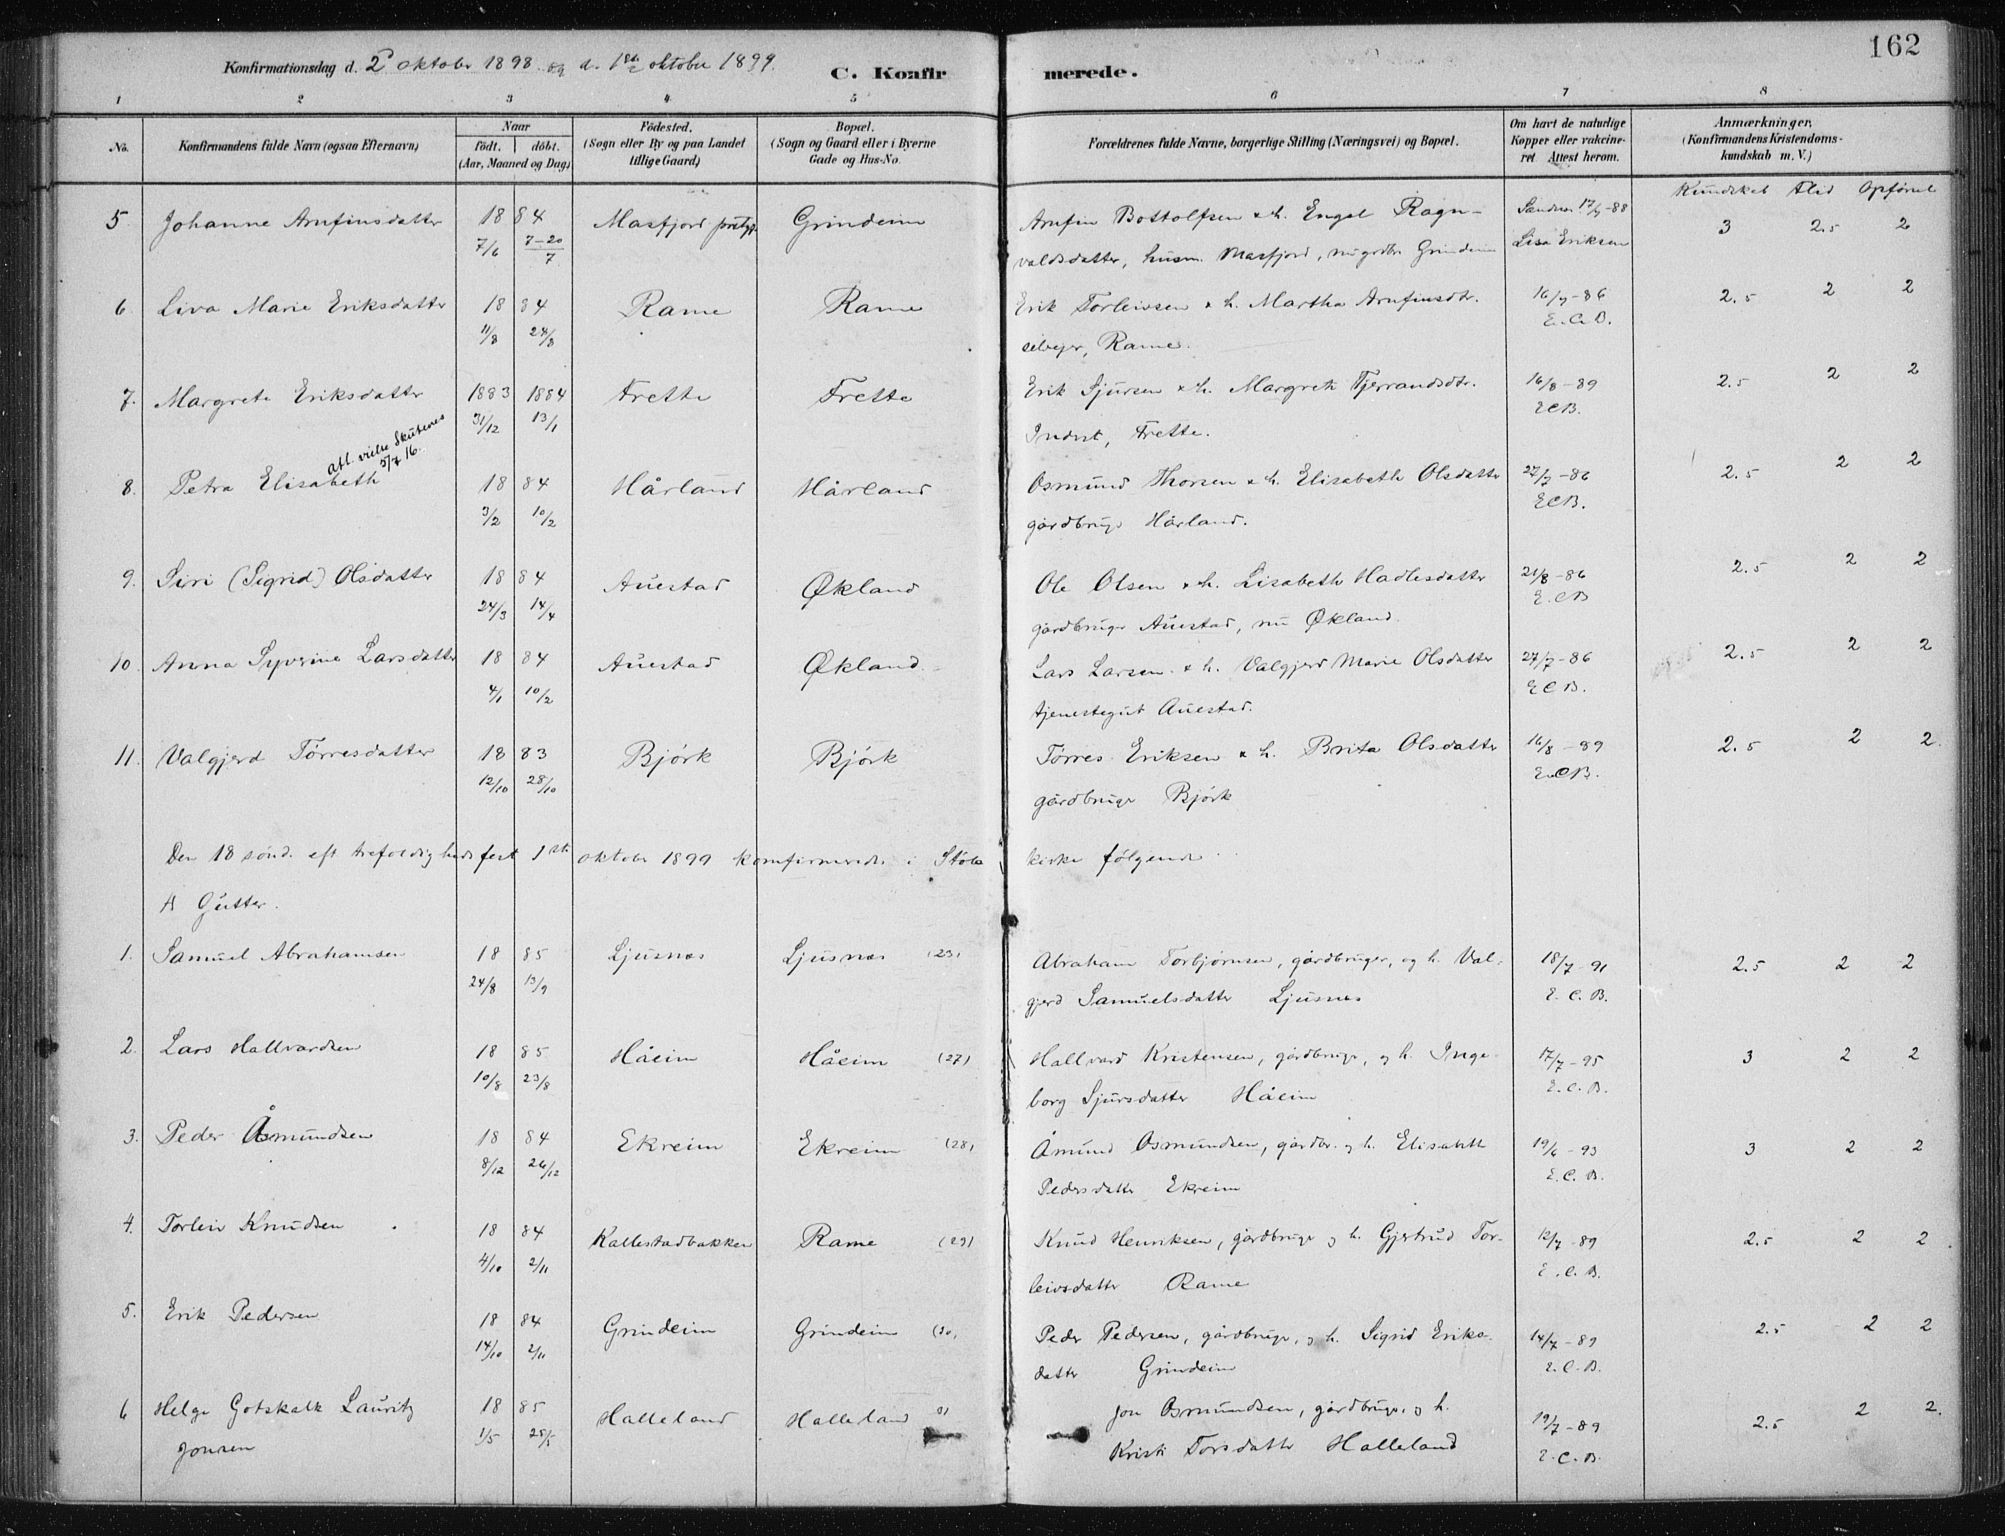 162
Konfirmationsdag d. 2 oktober 1898 og d. 1ste oktober 1899.
C. Konfirmerede.
1 2 3 4 5 6 7 8
No.
Konfirmandens fulde Navn (ogsaa Efternavn)
Naar
født. døbt.
(Aar, Maaned og Dag)
Fødested.
(Sogn eller By og paa Landet
tillige Gaard)
Bopæl.
(Sogn og Gaard eller i Byerne
Gade og Hus-No.
Forældrenes fulde Navne, borgerlige Stilling (Næringsvei) og Bopæl.
Om havt de naturlige
Kopper eller vakcine-
ret Attest herom.
Anmærkninger.
(Konfirmandens Kristendoms-
kundskab m. V.)
Kundskab Flid Opførsel
5 Johanne Arnfinsdatter 18 84 Masfjord Grindeim Arnfin Bottolfsen & h. Engel Ragn- 17/9-88 3 2.5 2
7/6 7-20/7 valdsdatter, husm. Masfjord, nu grdbr. Grindeim Lisa Eriksen
6 Liva Marie Eriksdatter 18 84 Rame Rame Erik Torleivsen & h. Martha Arnfinsdtr. 16/7-86 2.5 2 2
11/8 24/8 selvejer, Rame. E.C.B.
7. Margrete Eriksdatter 1883 1884 Frette Frette Erik Sjursen & h. Margrete Tjerrandsdtr. 16/8-89 2.5 2 2
31/12 13/1 Inderst, Frette. ECB.
att. vielse Skudenes
5/7 16.
8. Petra Elisabeth 18 84 Hårland Hårland Osmund Thorsen & h. Elisabeth Olsdatter 27/7-86 2.5 2 2
3/2 10/2 gårdbruger Hårland. ECB.
9. Siri (Sigrid) Olsdatter 18 84 Auestad Økland Ole Olsen & h. Lisabeth Hadlesdatter 21/8-86 2.5 2 2
24/3 14/4 gårdbruger Auestad, nu Økland. E.CB
10. Anna Syverine Larsdatter 18 84 Auestad Økland Lars Larsen & h. Valgjerd Marie Olsdatter 27/7-86 2.5 2 2
4/1 10/2 tjenestegut Auestad. ECB.
11. Valgjerd Tørresdatter 18 83 Bjørk Bjørk Tørres Eriksen & h. Brita Olsdatter 16/8-89 2.5 2 2.
12/10 28/10 gårdbruger Bjørk E.CB.
Den 18 sønd. eft trefoldighedsfest 1ste oktober 1899 konfirmerede i Støle kirke følgende
A Gutter.
1. Samuel Abrahamsen 18 85 Ljusnes Ljusnes (23) Abraham Torbjørnsen, gårdbruger, og h. Val- 18/7-91 2.5 2 2
24/8 13/9 gjerd Samuelsdatter Ljusnes E.C.B.
2. Lars Hallvardsen 18 85 Håeim Håeim (27) Hallvard Kristensen, gårdbruger, og h. Inge- 17/7-95 3 2 2
10/8 23/8 borg Sjursdatter Håeim E.C.B.
3. Peder Åsmundsen 18 84 Ekreim Ekreim (28) Åmund Osmundsen, gårdbr. og h. Elisabeth 19/6-93 3 2 2
8/12 26/12 Pedersdatter Ekreim E.C.B.
4. Torleiv Knudsen 18 84 Kallestadbakken Rame (29) Knud Henriksen, gårdbruger og h. Gjertrud Tor- 12/7-89 2.5 2 2
4/10 2/11 leivsdatter Rame E.C.B.
5. Erik Pedersen 18 84 Grindeim Grindeim (30) Peder Pedersen, gårdbruger, og h. Sigrid Eriks- 14/7-89 2.5 2 2
14/10 2/11 datter Grindeim E.C.B.
6 Helge Gotskalk Lauritz 18 85 Halleland Halleland Jon Osmundsen, gårdbruger, og h. 19/7-89 2.5 2 2.
Jonsen 1/5 25/5 Kristi Torsdatter Halleland E.C.B.